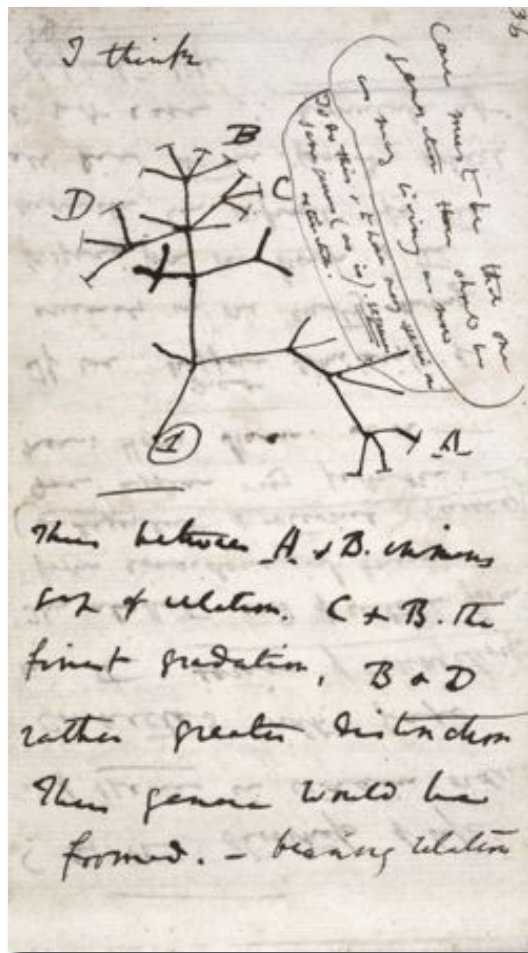 36
I think
Case must be that one
generation then should be
as many living as now
To do this & to have many species in
same genus (as is) requires
extinction.
B
C
D
A
1
Thus between A & B. immense
gap of relation. C & B. The
finest gradation, B & D
rather greater distinction
Thus genera would be
formed. — bearing relation